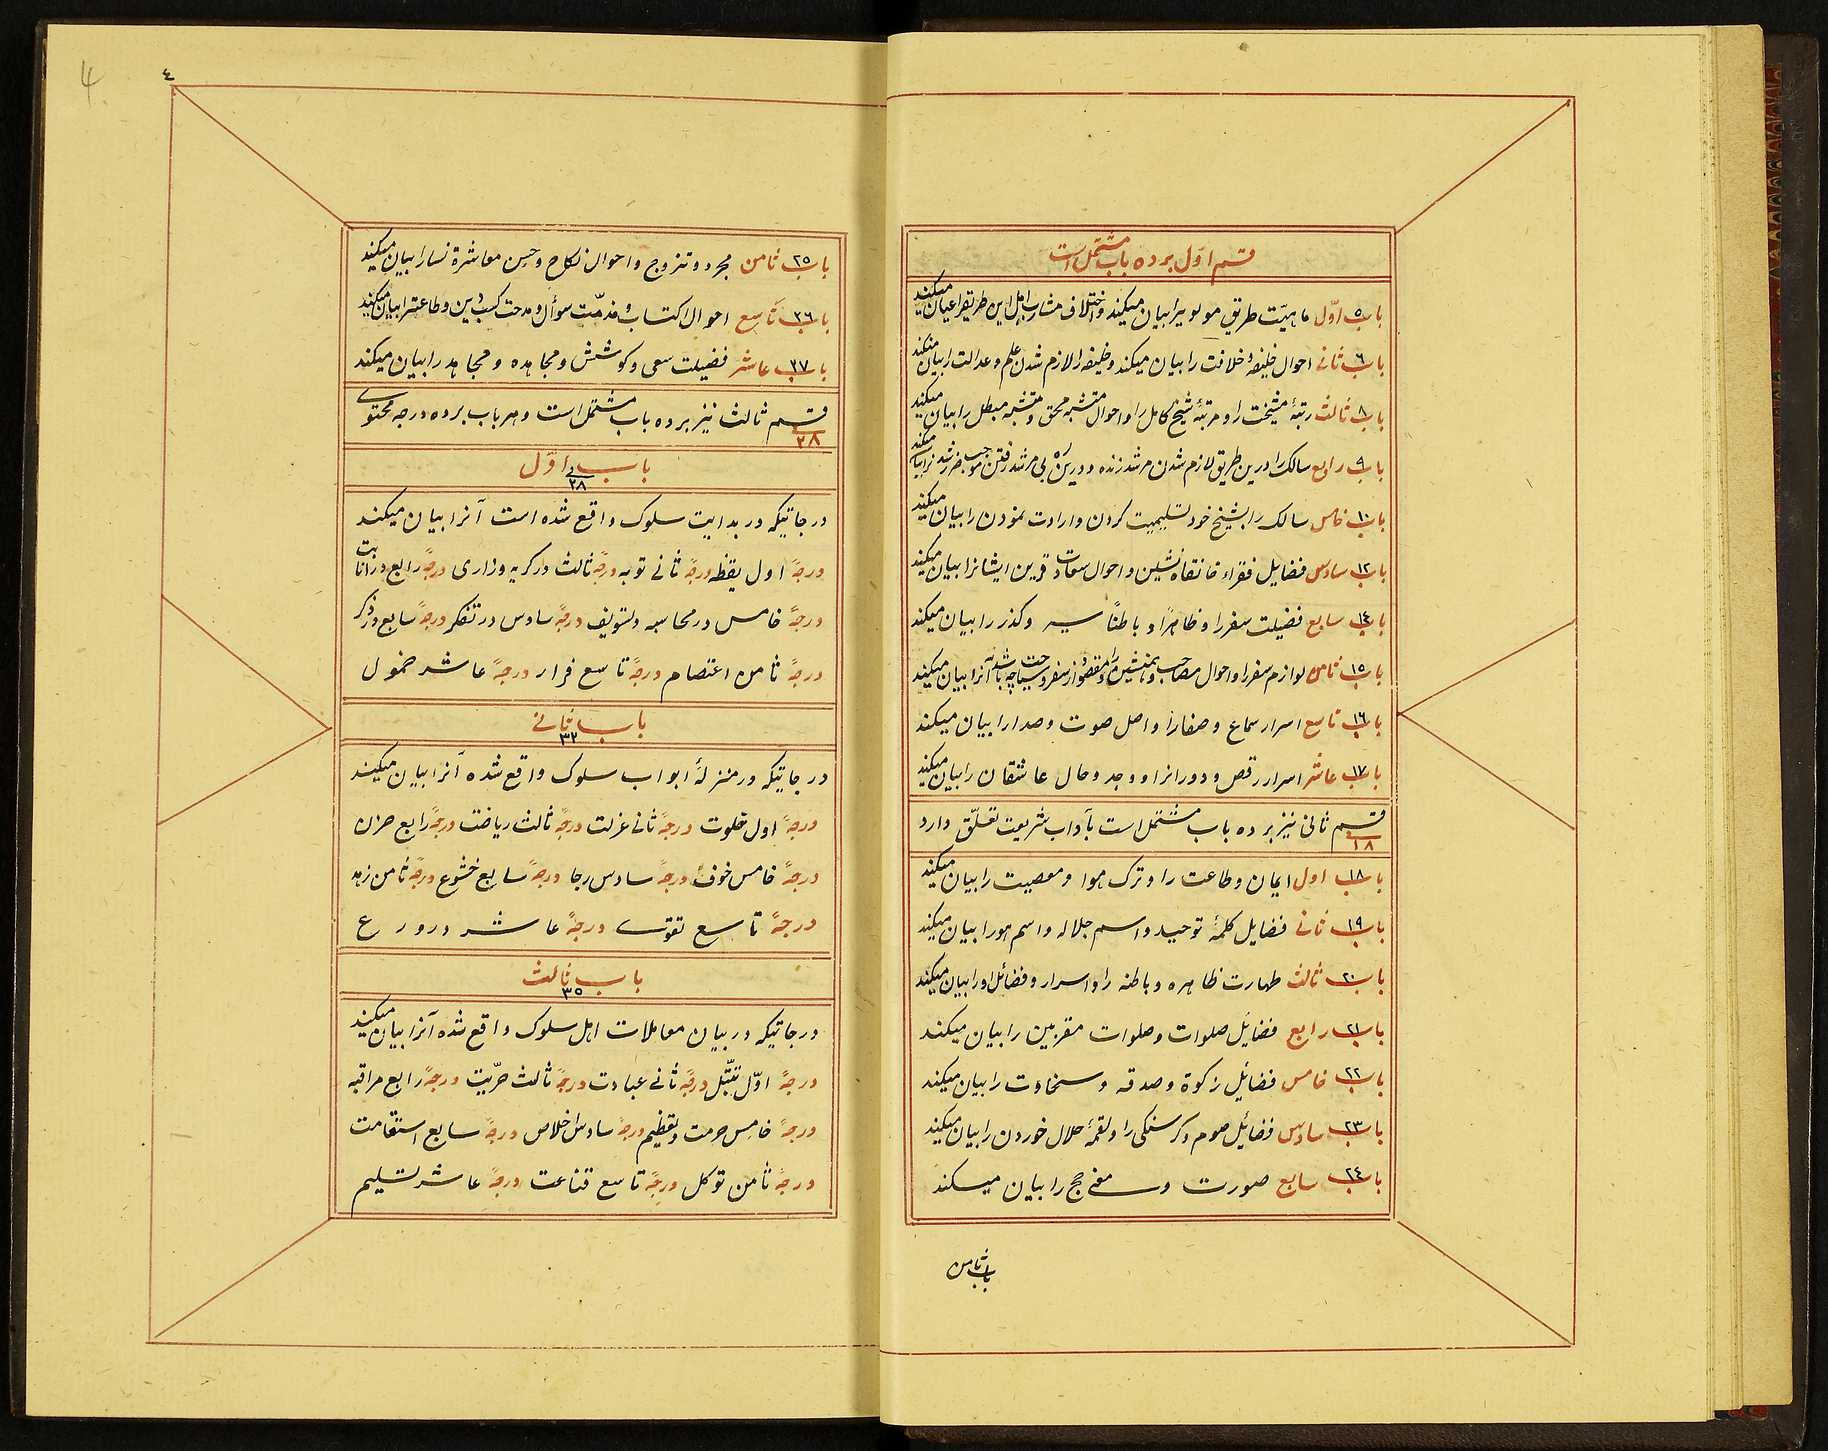 قسم اوّل بر ده باب مشتمل است
باب ٥ اوّل ماهیّت طریق مولویرا بیان میکند و اختلاف مشارب اهل این طریقرا عیان میکند
باب ٦ ثانی احوال خلیفه و خلافت را بیان میکند و خلیفه را لازم شدن علم و عدالت را بیان میکند
باب ٨ ثالث رتبهٔ مشیخت را و مرتبهٔ شیخ کامل را و احوال متشبه محق و متشبه مبطل را بیان میکند
باب ٩ رابع سالک را درین طریق لازم شدن مرشد زنده و درین ره بی مرشد رفتن موجب ضرر شد
باب ١٠ خامس سالک را بشیخ خود تسلیمیت کردن و ارادت نمودن را بیان میکند
باب ١٢ سادس فضایل فقراء خانقاه نشین و احوال سعادت قرین ایشانرا بیان میکند
باب ١٤ سابع فضیلت سفر را و ظاهرًا و باطنًا سیر و کذر را بیان میکند
باب ١٥ ثامن لوازم سفر را و احوال مصاحب و همنشین را و مقصود از سفر و سیاحت چه باشد آنرا بیان میکند
باب ١٦ تاسع اسرار سماع و صفارا و اصل صوت و صدارا بیان میکند
باب ١٧ عاشر اسرار رقص و دورانرا و وجد و حال عاشقان را بیان میکند
قسم ثانی نیز بر ده باب مشتمل است بآداب شریعت تعلّق دارد
١٨
باب ١٨ اول ایمان و طاعت را و ترک هوا و معصیت را بیان میکند
باب ١٩ ثانی فضایل کلمهٔ توحید و اسم جلاله و اسم هورا بیان میکند
باب ٢٠ ثالث طهارت ظاهره و باطنه را و اسرار و فضائل اورا بیان میکند
باب ٢١ رابع فضائل صلوات و صلوات مقربین را بیان میکند
باب ٢٢ خامس فضائل زکوة و صدقه و سخاوت را بیان میکند
باب ٢٣ سادس فضائل صوم و کرسنکی را و لقمهٔ حلال خوردن را بیان میکند
باب ٢٤ سابع صورت و معنی حج را بیان میکند
باب ثامن
٤
4
باب ٢٥ ثامن مجرد و تزوج و احوال نکاح و حسن معاشرة نسارا بیان میکند
باب ٢٦ تاسع احوال اکتساب و مذمّت سوأل و مدحت کسب دین و طاعترا بیان میکند
باب ٢٧ عاشر فضیلت سعی و کوشش و مجاهده و مجاهد را بیان میکند
قسم ثالث نیز بر ده باب مشتمل است و هر باب بر ده درجه محتوی
٢٨
باب اوّل
٢٨
درجاتیکه در بدایت سلوک واقع شده است آنرا بیان میکند
درجهٔ اول یقظه درجهٔ ثانی توبه درجهٔ ثالث در کریه وزاری درجهٔ رابع در انابت
درجهٔ خامس در محاسبه و تسویف درجهٔ سادس در تفکر درجهٔ سابع در ذکر
درجهٔ ثامن اعتصام درجهٔ تاسع فرار درجهٔ عاشر خمول
باب ثانی
٣٢
درجاتیکه در منزلهٔ ابواب سلوک واقع شده آنرا بیان میکند
درجهٔ اول خلوت درجهٔ ثانی عزلت درجهٔ ثالث ریاضت درجهٔ رابع حزن
درجهٔ خامس خوف درجهٔ سادس رجا درجهٔ سابع خشوع درجهٔ ثامن زهد
درجهٔ تاسع تقوی درجهٔ عاشر در ورع
باب ثالث
٣٥
درجاتیکه در بیان معاملات اهل سلوک واقع شده آنرا بیان میکند
درجهٔ اوّل تبتّل درجهٔ ثانی عبادت درجهٔ ثالث حرّیت درجهٔ رابع مراقبه
درجهٔ خامس حرمت و تعظیم درجهٔ سادس اخلاص درجهٔ سابع استقامت
درجهٔ ثامن توکل درجهٔ تاسع قناعت درجهٔ عاشر تسلیم